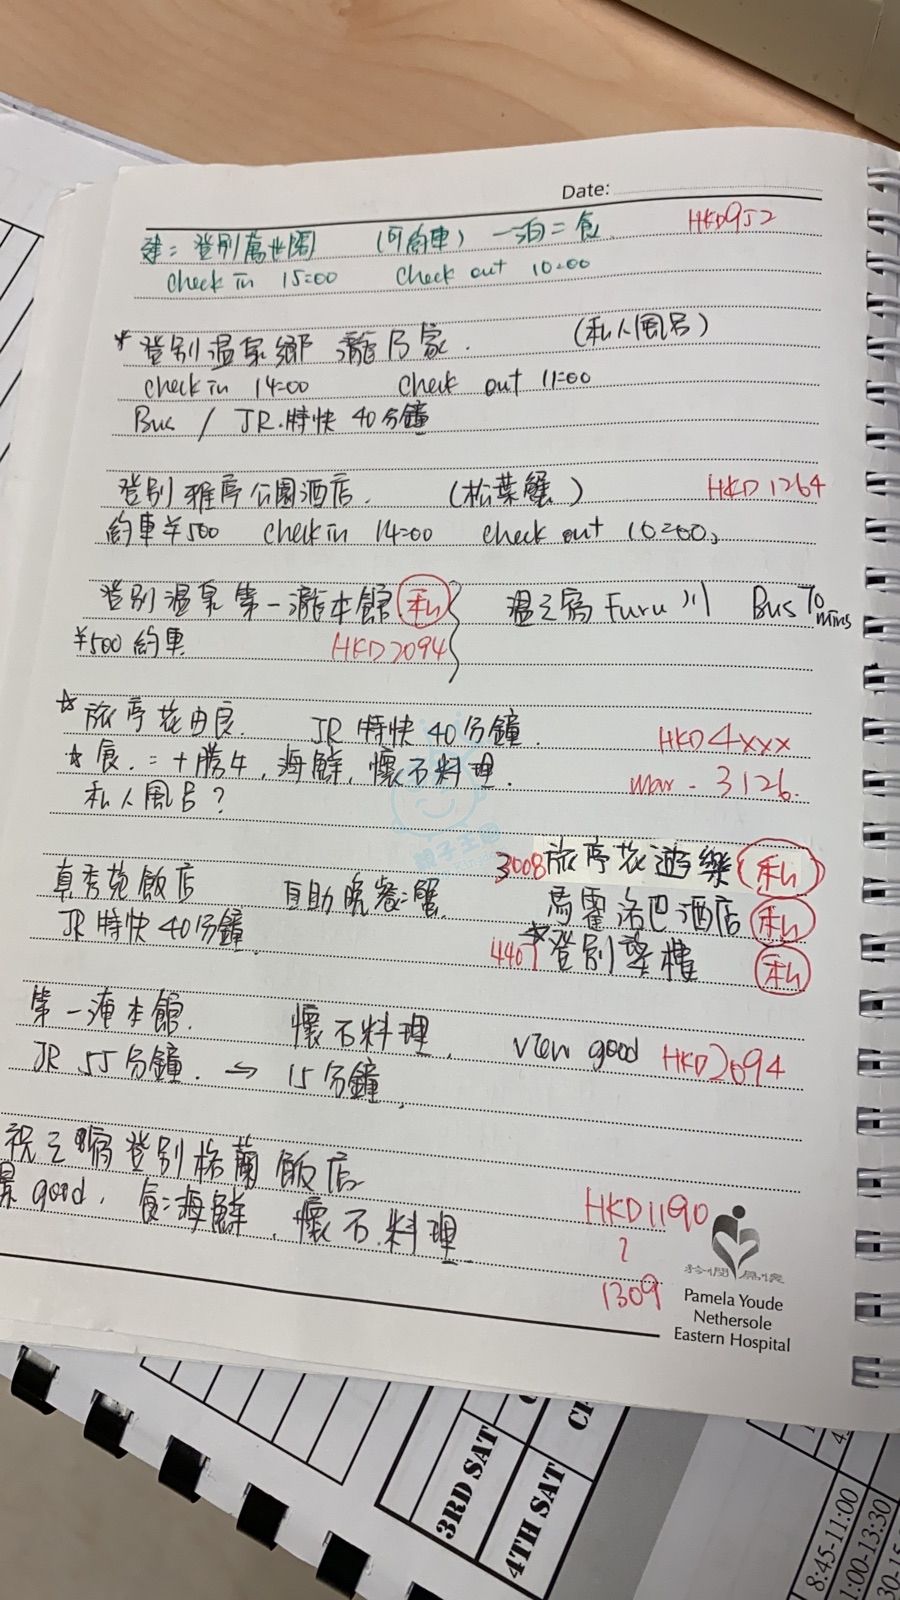 Date:
建：登別萬世閣 （可約車） 一泊二食 HKD952
check in 15:00 check out 10:00
* 登別温泉鄉 瀧乃家. （私人風呂）
check in 14:00 check out 11:00
Bus / JR.特快 40分鐘
登別 雅亭公園酒店. （松葉蟹） HKD1264
約車¥500 check in 14:00 check out 10:00
登別温泉第一瀧本館 私 温之宿 Furu川 Bus 70 mins
¥500 約車 HKD2094
☆ 旅亭花由良. JR 特快 40分鐘. HKD4xxx
☆ 食：十勝牛，海鮮，懷石料理. mar - 3126.
私人風呂？
3008 旅亭花遊樂 私
真秀苑飯店 自助晚餐：蟹 馬霍洛巴酒店 私
JR 特快 40分鐘 4407 *登別望樓 私
第一滝本館. 懷石料理. view good HKD2094
JR 55分鐘. 15分鐘.
祝之宿登別格蘭飯店
景good. 食：海鮮，懷石料理 HKD1190
1309
Pamela Youde
Nethersole
Eastern Hospital
3RD SAT
4TH SAT
8:45-11:00